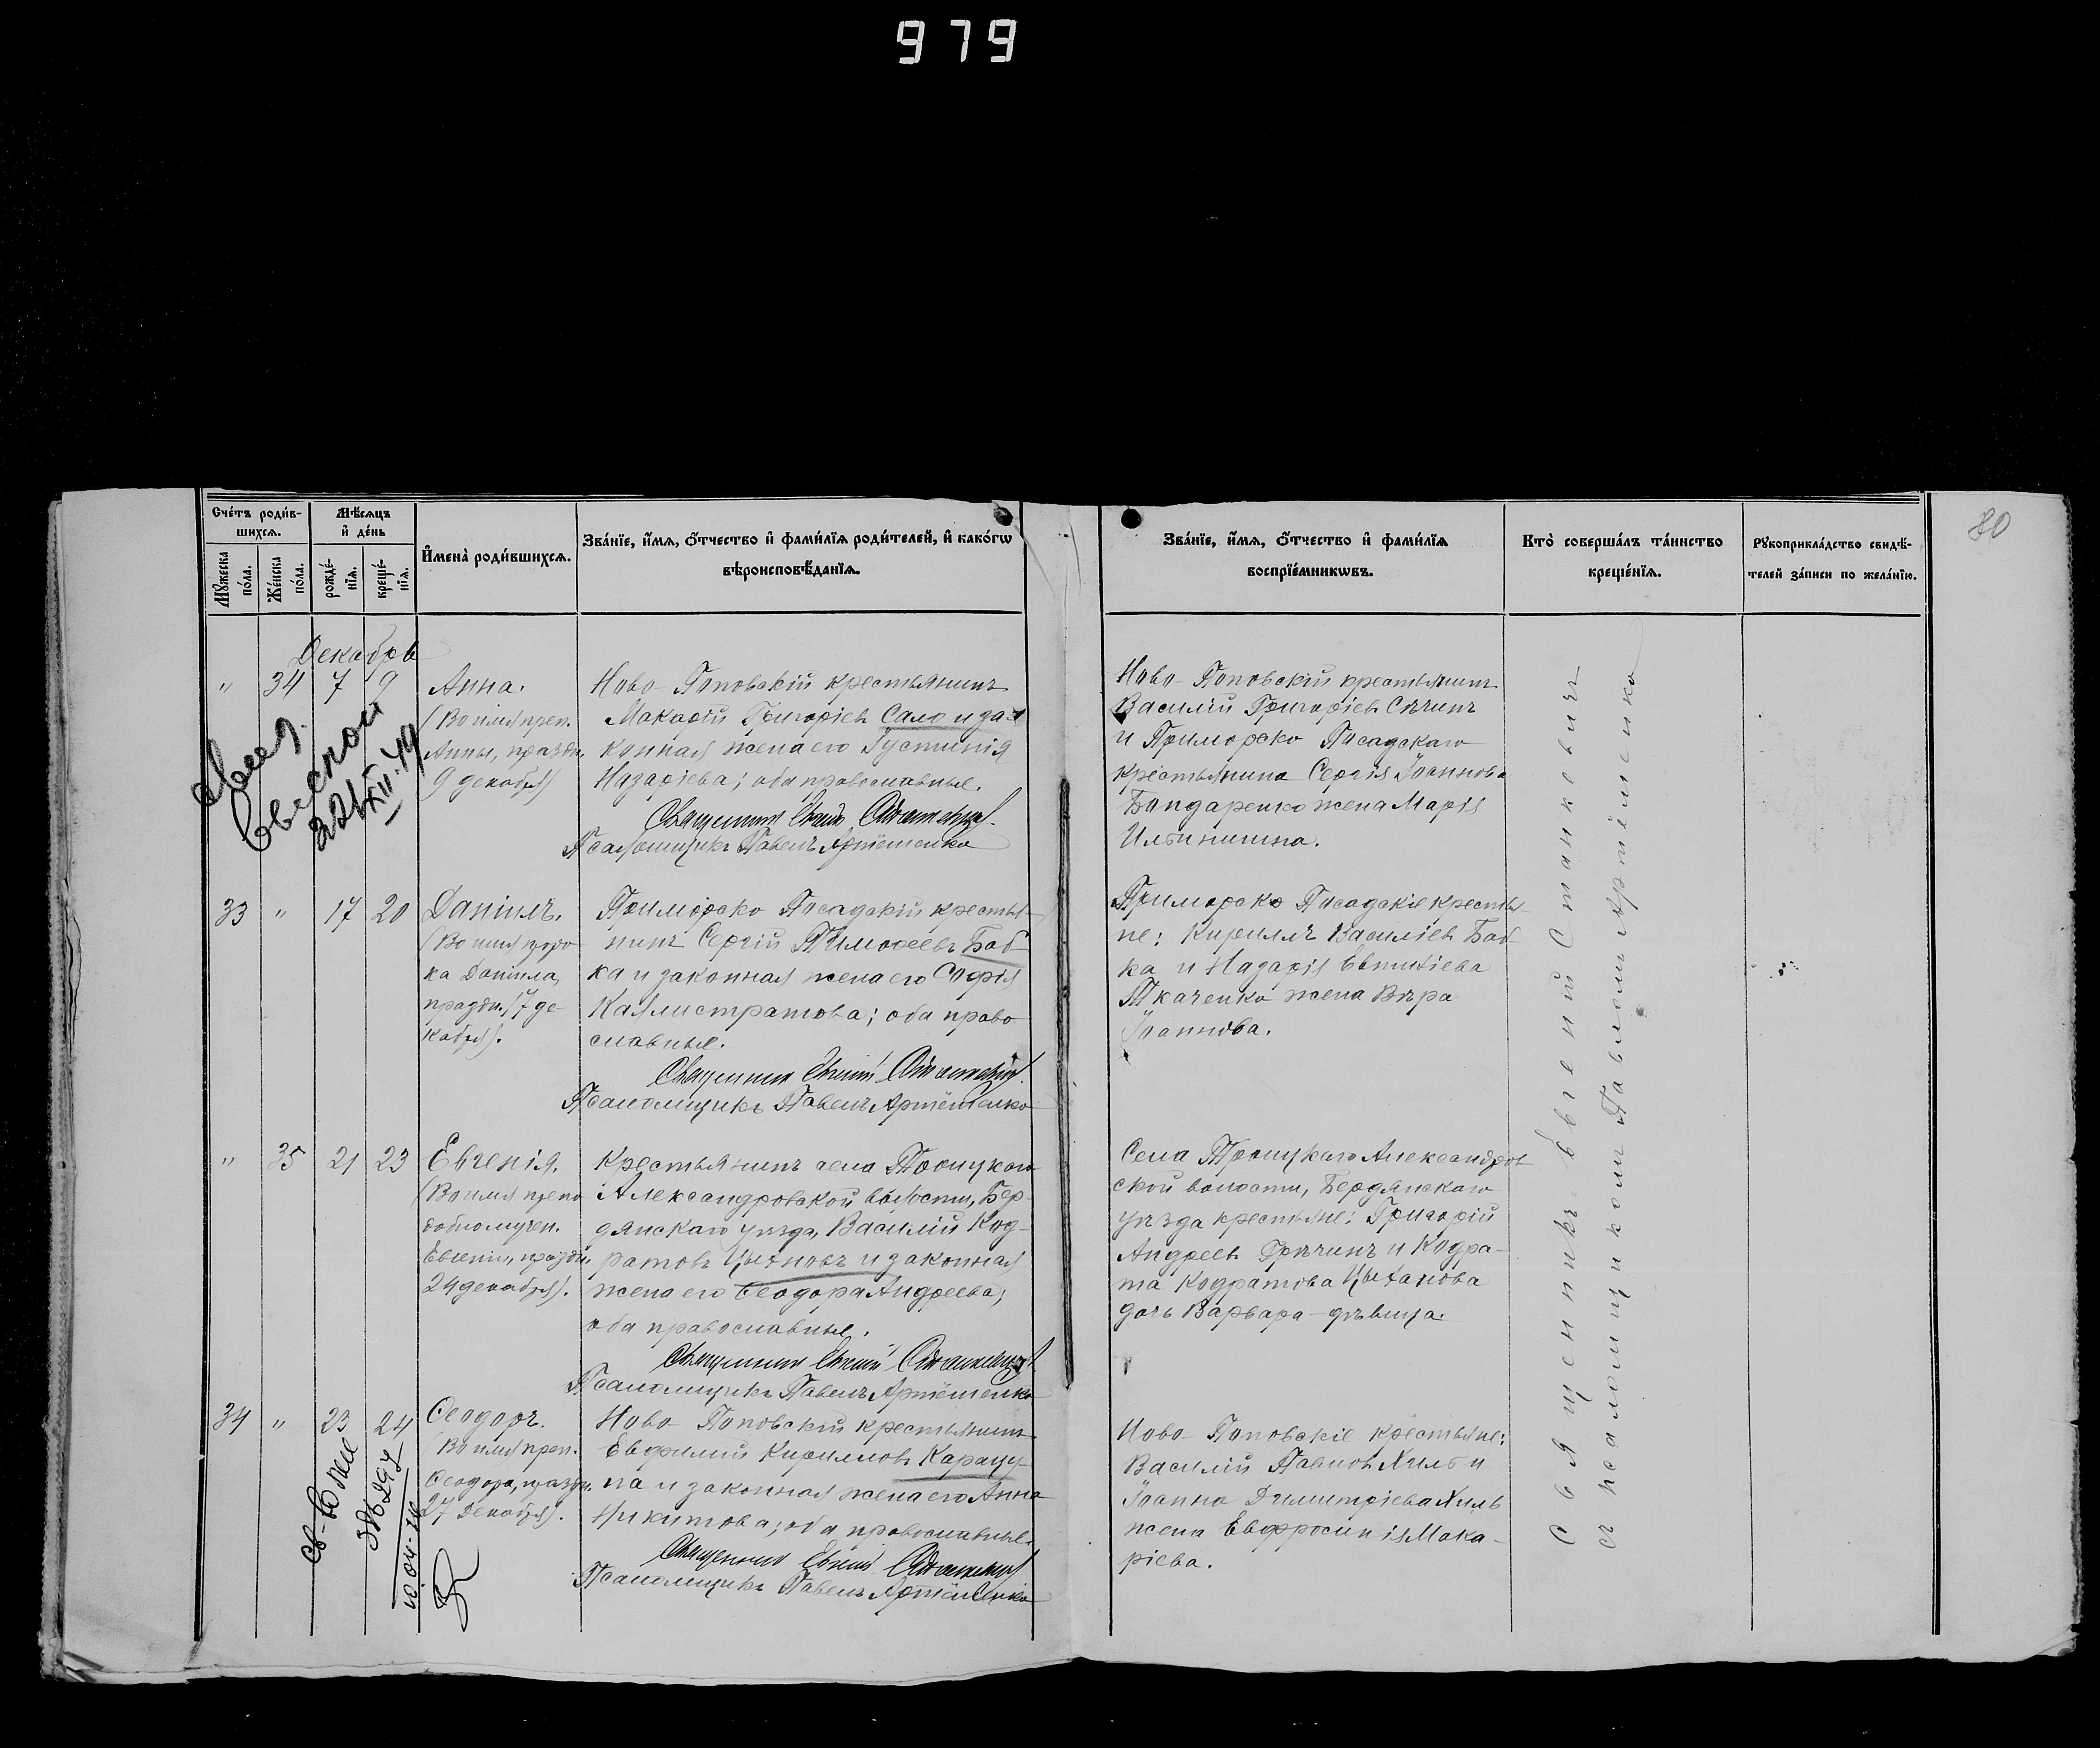 979
80
Счетъ родив-
шихся.
Мужеска
пола.
Женска
пола.
Мѣсяцъ
и день
рожде-
нія.
креще-
нія.
Имена родившихся.
Званіе, имя, отчество и фамилія родителей, и какогω
вѣроисповѣданія.
Званіе, имя, отчество и фамилія
воспріемникωвъ.
Кто совершалъ таинство
крещенія.
Рукоприкладство свидѣ-
телей записи по желанію.
Декабрь
" 34 7 9
Анна.
(Во имя преп.
Анны, праздн.
9 декабря)
Ново-Поповскій крестьянинъ
Макарій Григоріевъ Сало и за-
конная жена его Іустинія
Назаріева; оба православные.
Священникъ Евгеній Станкевичъ
Псаломщикъ Павелъ Артёменко
Ново-Поповскій крестьянинъ
Василій Григоріевъ Сѣчинъ
и Приморско Посадскаго
крестьянина Сергія Іоаннова
Бондаренко жена Марія
Ильинишна.
XII. 49
33 " 17 20
Даніилъ.
(Во имя проро
ка Даніила,
праздн. 17 де-
кабря).
Приморско Посадскій крестья-
нинъ Сергій Тимофеевъ Баб-
ка и законная жена его Софія
Каллистратова; оба право
славные.
Священникъ Евгеній Станкевичъ
Псаломщикъ Павелъ Артёменко
Приморско Посадскіе крестья-
не: Кириллъ Василіевъ Баб-
ка и Назарія Евтихіева
Ткаченко жена Вѣра
Іоаннова.
" 35 21 23
Евгенія.
(Во имя препо
добномучен.
Евгеніи, праздн.
24 декабря).
Крестьянинъ села Троицкаго
Александровской волости, Бер-
дянскаго уѣзда, Василій Код-
ратовъ Цыхновъ и законная
жена его Ѳеодора Андреева;
оба православные.
Священникъ Евгеній Станкевичъ
Псаломщикъ Павелъ Артёменко
Села Троицкаго Александров
ской волости, Бердянскаго
уѣзда крестьяне: Григорій
Андреевъ Грѣчинъ и Кодра-
та Кодратова Цыханова
дочь Варвара - дѣвица.
34 " 23 24
Ѳеодоръ.
(Во имя преп.
Ѳеодора, праздн.
27 декабря).
Ново-Поповскій крестьянинъ
Евфимій Кирилловъ Карацу-
па и законная жена его Анна
Никитова; оба православные.
Священникъ Евгеній Станкевичъ
Псаломщикъ Павелъ Артёменко
Ново-Поповскіе крестьяне:
Василій Павловъ Хиль и
Іоанна Димитріева Хиль
жена Евфросинія Мака-
ріева.
Священникъ Евгеній Станкевичъ
съ псаломщикомъ Павломъ Артёменко